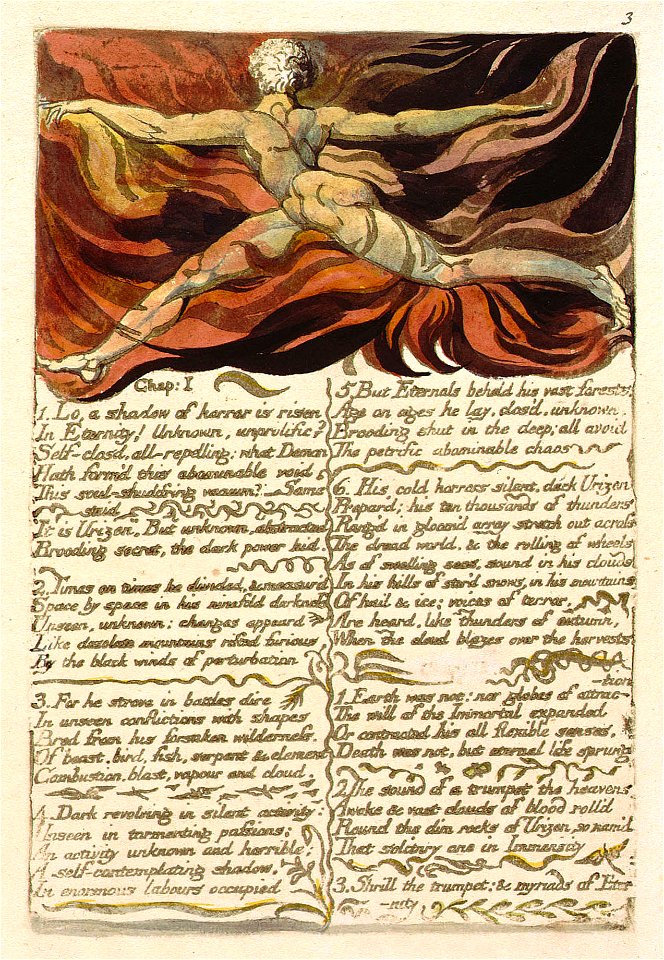 3
Chap: I
1. Lo, a shadow of horror is risen
In Eternity! Unknown, unprolific?
Self-closd, all-repelling; what Demon
Hath form'd this abominable void
This soul-shudd'ring vacuum?—Some
said
"It is Urizen", But unknown, abstracted
Brooding secret, the dark power hid.
2. Times on times he divided, & measur'd
Space by space in his ninefold darkness
Unseen, unknown: changes appeard
Like desolate mountains rifted furious
By the black winds of perturbation
3. For he strove in battles dire
In unseen conflictions with shapes
Bred from his forsaken wilderness,
Of beast, bird, fish, serpent & element
Combustion, blast, vapour and cloud.
4. Dark revolving in silent activity:
Unseen in tormenting passions;
An activity unknown and horrible;
A self-contemplating shadow,
In enormous labours occupied
5. But Eternals beheld his vast forests
Age on ages he lay, clos'd, unknown,
Brooding shut in the deep; all avoid
The petrific abominable chaos
6. His cold horrors silent, dark Urizen
Prepar'd; his ten thousands of thunders
Rang'd in gloom'd array stretch out across
The dread world, & the rolling of wheels
As of swelling seas, sound in his clouds
In his hills of stor'd snows, in his mountains
Of hail & ice; voices of terror,
Are heard, like thunders of autumn,
When the cloud blazes over the harvests
-tion
1. Earth was not: nor globes of attrac-
The will of the Immortal expanded
Or contracted his all flexible senses.
Death was not, but eternal life sprung
2. The sound of a trumpet the heavens
Awoke & vast clouds of blood roll'd
Round the dim rocks of Urizen, so nam'd
That solitary one in Immensity
3. Shrill the trumpet: & myriads of Eter
-nity,